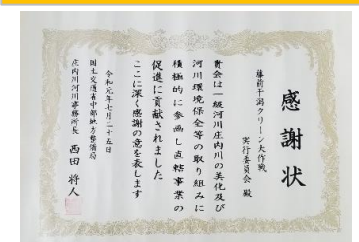 感謝状
藤前干潟クリーン大作戦
実行委員会 殿
貴会は一級河川庄内川の美化及び
河川環境保全等の取り組みに
積極的に参画し直轄事業の
促進に貢献されました
ここに深く感謝の意を表します
令和元年七月二十五日
国土交通省中部地方整備局
庄内川河川事務所長 西田将人